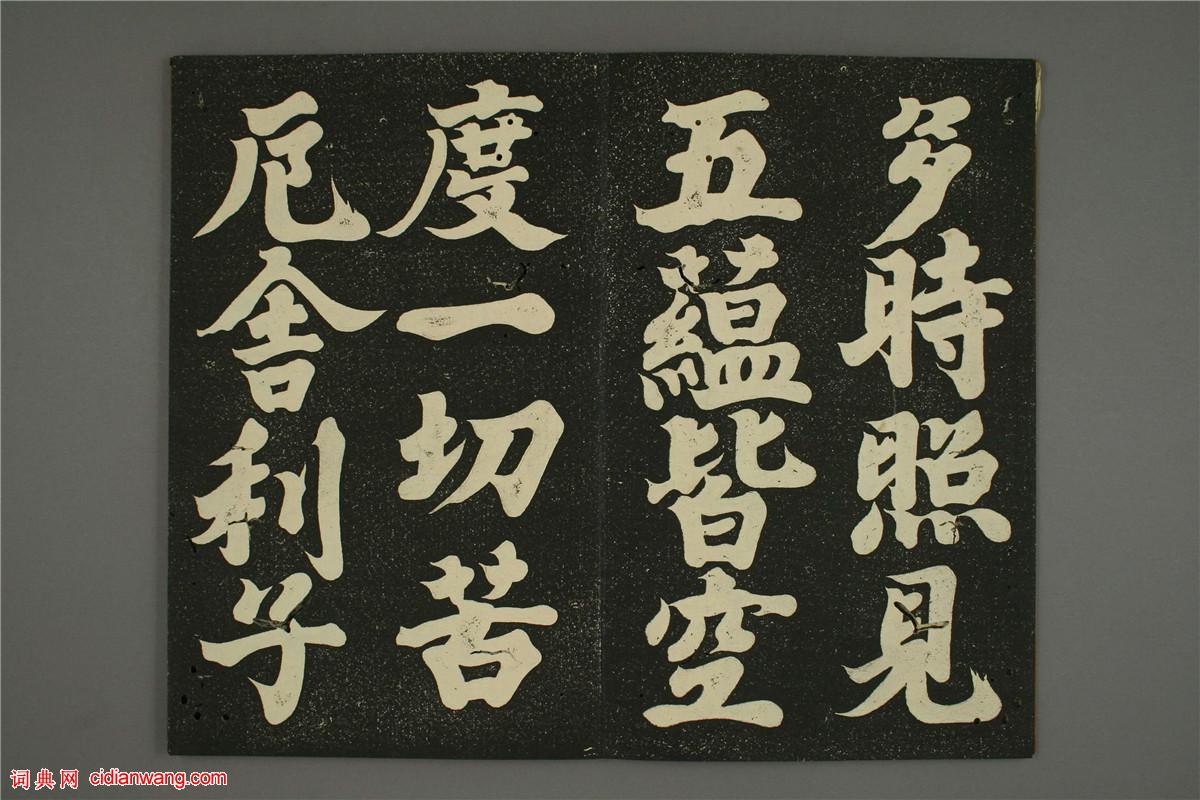 多時照見
五蘊皆空
度一切苦
厄舍利子
词典网 cidianwang.com